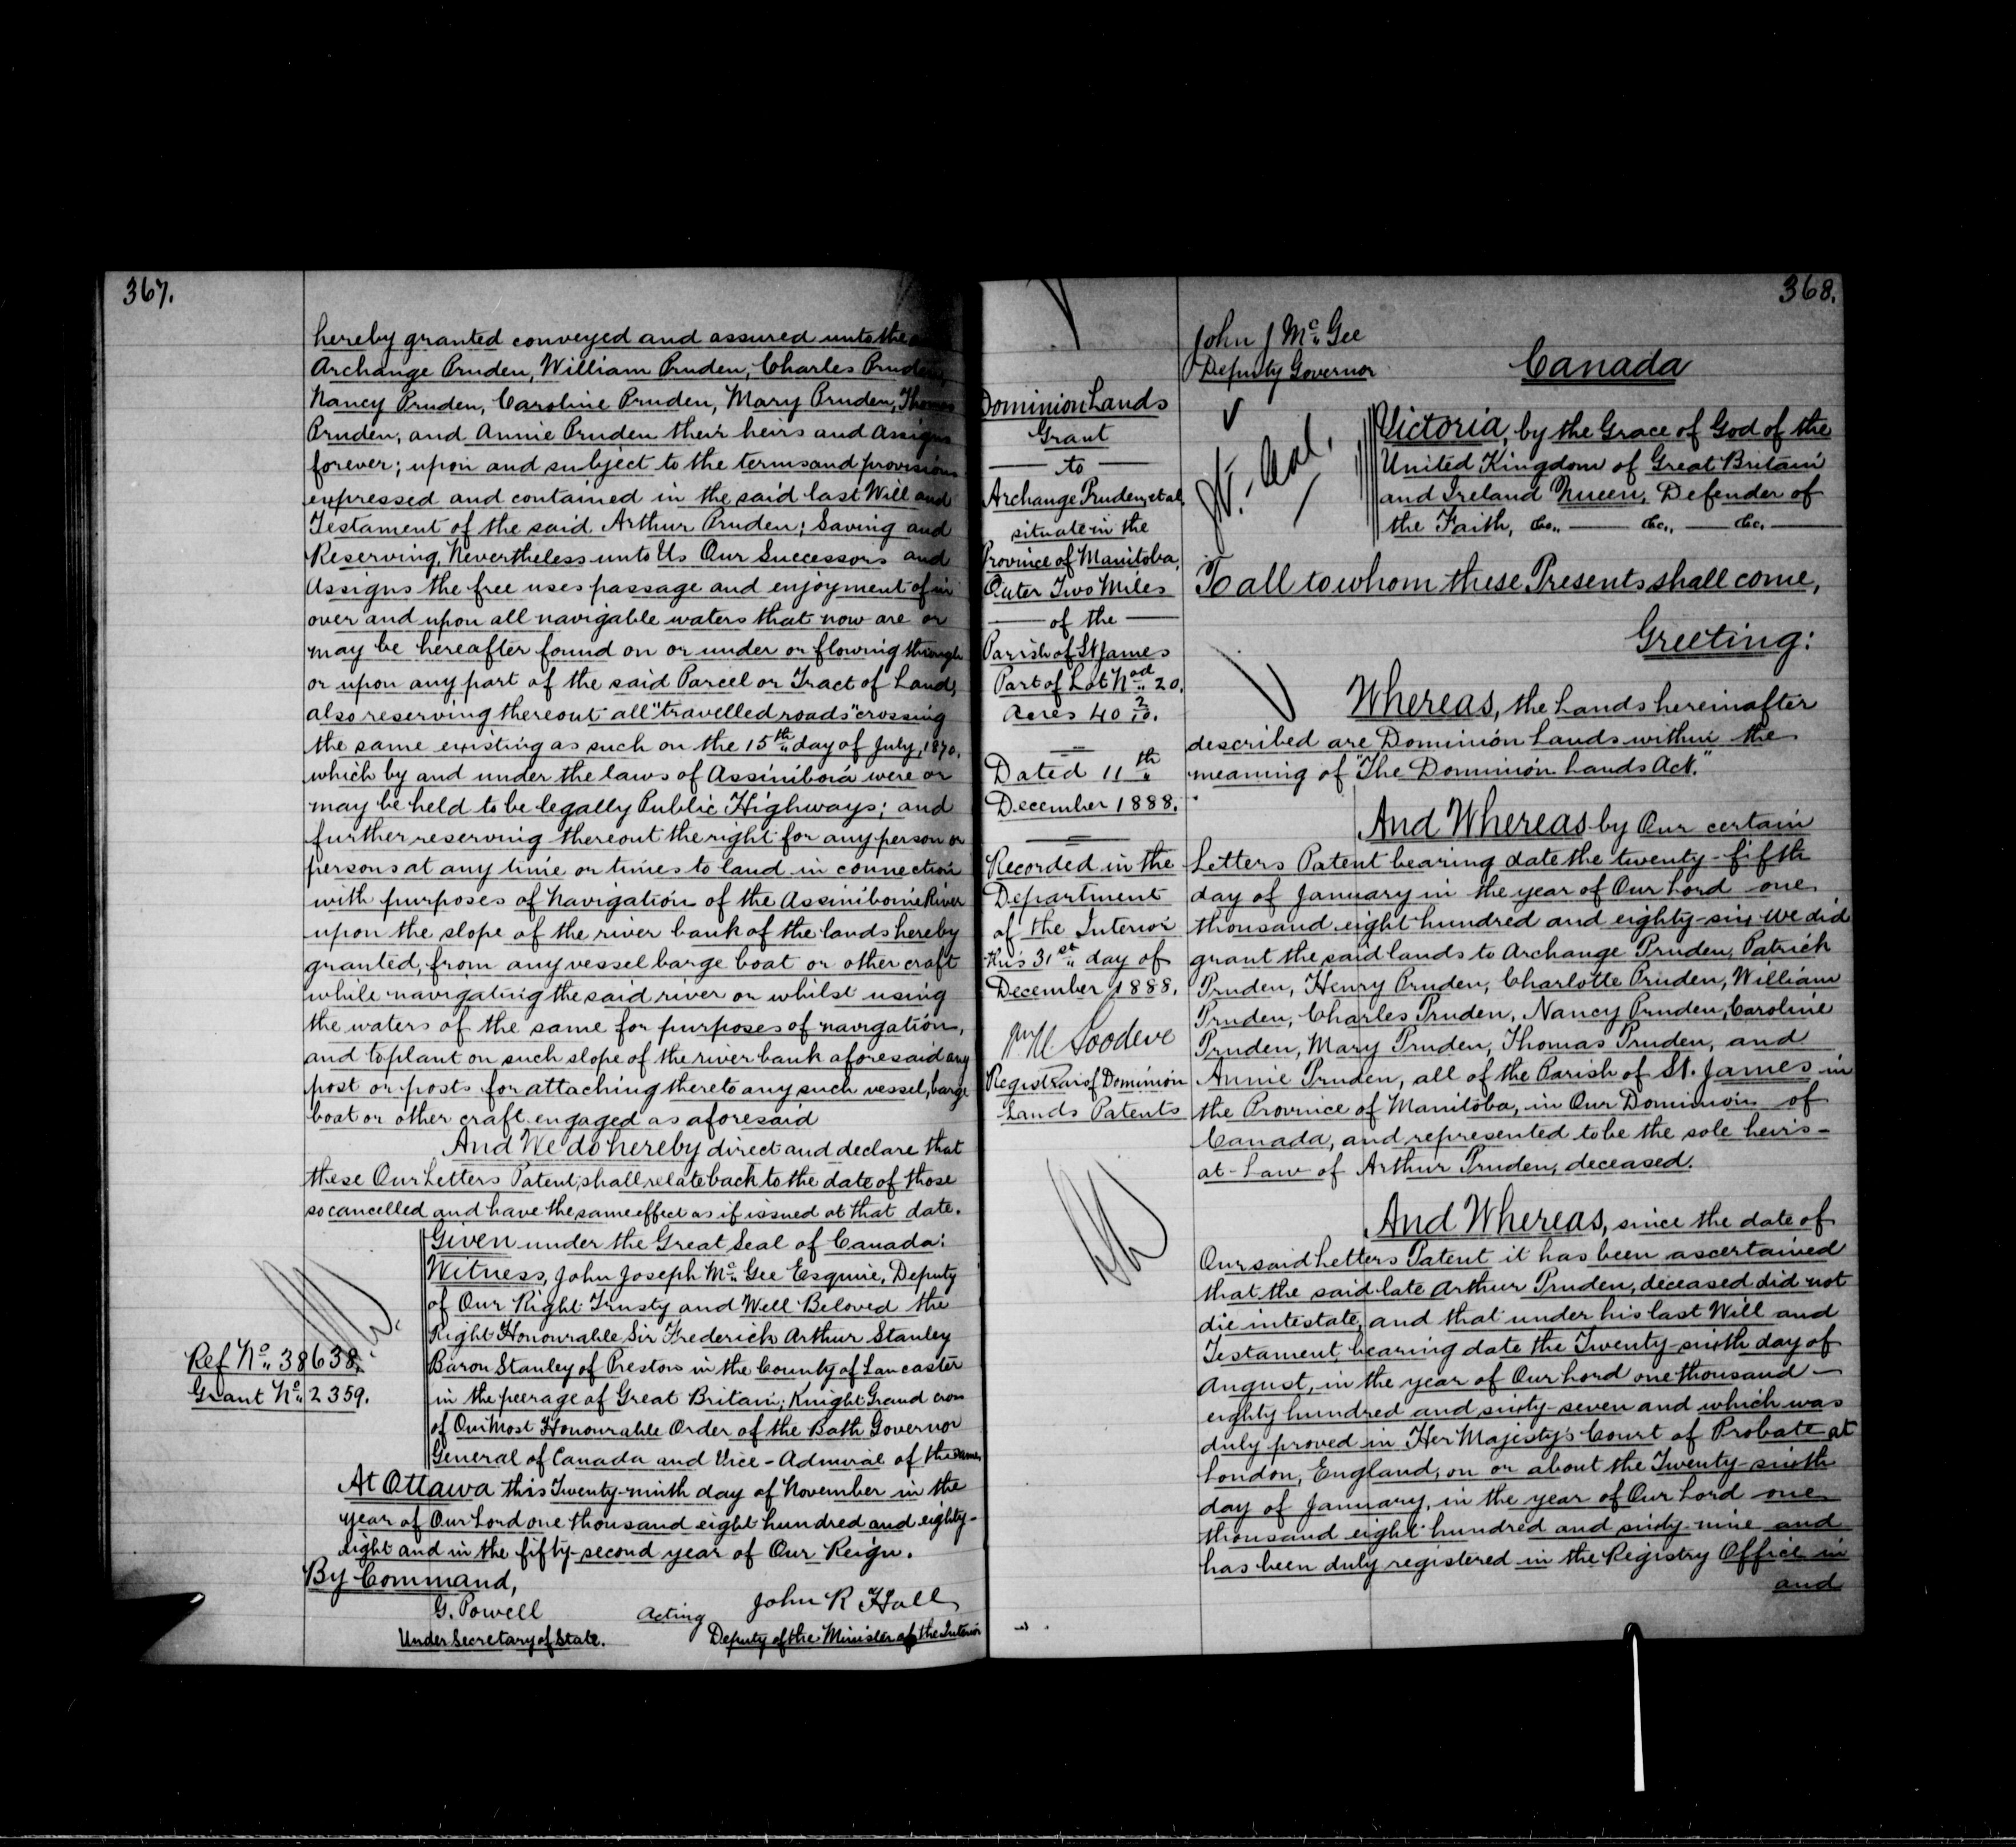 367.
hereby granted conveyed and assured unto the
Archange Pruden, William Pruden, Charles Pruden,
Nancy Pruden, Caroline Pruden, Mary Pruden, Thomas
Pruden, and Annie Pruden their heirs and assigns
forever; upon and subject to the terms and provisions
expressed and contained in the said last Will and
Testament of the said Arthur Pruden; Saving and
Reserving, Nevertheless unto Us Our Successors and
Assigns the free uses passage and enjoyment of in
over and upon all navigable waters that now are or
may be hereafter found on or under or flowing through
or upon any part of the said Parcel or Tract of Land,
also reserving thereout all "travelled roads" crossing
the same existing as such on the 15th day of July, 1870,
which by and under the laws of Assiniboia were or
may be held to be legally Public Highways; and
further reserving thereout the right for any person or
persons at any time or times to land in connection
with purposes of Navigation of the Assiniboine River
upon the slope of the river bank of the lands hereby
granted, from any vessel barge boat or other craft
while navigating the said river or whilst using
the waters of the same for purposes of navigation,
and to plant on such slope of the river bank aforesaid any
post or posts for attaching thereto any such vessel, barge
boat or other craft engaged as aforesaid
And We do hereby direct and declare that
these Our Letters Patent, shall relate back to the date of those
so cancelled and have the same effect as if issued at that date.
Given under the Great Seal of Canada:
Witness, John Joseph McGee Esquire, Deputy
of Our Right Trusty and Well Beloved the
Right Honourable Sir Frederick Arthur Stanley
Baron Stanley of Preston in the County of Lancaster
in the peerage of Great Britain; Knight Grand cross
of Our Most Honourable Order of the Bath Governor
General of Canada and Vice-Admiral of the same
At Ottawa this Twenty-ninth day of November in the
year of Our Lord one thousand eight hundred and eighty-
eight and in the fifty-second year of Our Reign.
By Command,
G. Powell
Under Secretary of State.
John R Hall
Acting
Deputy of the Minister of the Interior
Ref No. 38638.
Grant No. 2359.
368.
Dominion Lands
Grant
to
Archange Pruden, et al,
situate in the
Province of Manitoba,
Outer Two Miles
of the
Parish of St James
Part of Lot Nod 20.
Acres 40 2/10.
Dated 11th
December 1888.
Recorded in the
Department
of the Interior
this 31st day of
December 1888.
Goodeve
Registrar of Dominion
Lands Patents
John J McGee
Deputy Governor
Canada
Victoria, by the Grace of God of the
United Kingdom of Great Britain
and Ireland Queen, Defender of
the Faith, &c., — &c., — &c. —
To all to whom these Presents shall come,
Greeting:
Whereas, the Lands hereinafter
described are Dominion Lands within the
meaning of "The Dominion Lands Act."
And Whereas by Our certain
Letters Patent bearing date the twenty-fifth
day of January in the year of Our Lord one
thousand eight hundred and eighty-six We did
grant the said lands to Archange Pruden, Patrick
Pruden, Henry Pruden, Charlotte Pruden, William
Pruden, Charles Pruden, Nancy Pruden, Caroline
Pruden, Mary Pruden, Thomas Pruden, and
Annie Pruden, all of the Parish of St. James in
the Province of Manitoba, in Our Dominion of
Canada, and represented to be the sole heirs-
at-Law of Arthur Pruden, deceased.
And Whereas, since the date of
Our said Letters Patent it has been ascertained
that the said late Arthur Pruden, deceased did not
die intestate, and that under his last Will and
Testament, bearing date the Twenty-sixth day of
August, in the year of Our Lord one thousand —
eighty hundred and sixty-seven and which was
duly proved in Her Majesty's Court of Probate at
London, England, on or about the Twenty-sixth
day of January, in the year of Our Lord one
thousand eight hundred and sixty-nine and
has been duly registered in the Registry Office in
and